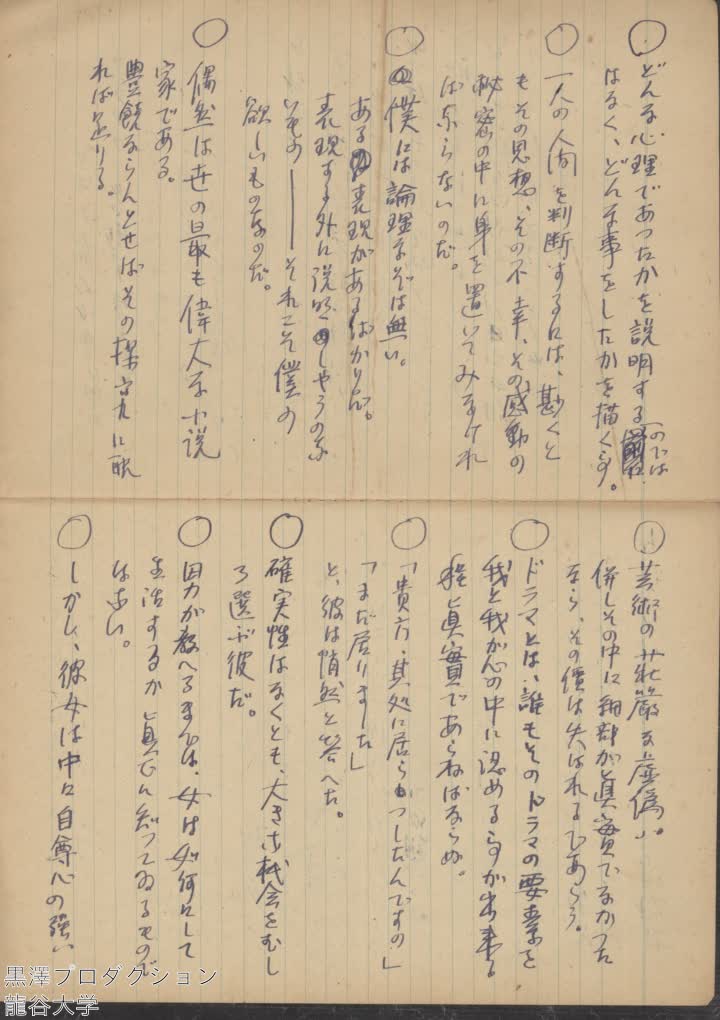 ○どんな心理であつたかを説明するのでは
はなく、どんな事をしたかを描く事。
○一人の人間を判断するには、尠くと
もその思想、その不幸、その感動の
秘密の中に身を置いてみなけれ
ばならないのだ。
○僕には論理なぞは無い。
ある表現があるばかりだ。
表現する外に説明のしやうのな
いもの――それこそ僕の
欲しいものなのだ。
○偶然は世の最も偉大な小説
家である。
豊饒ならんとせばその探究に耽
れば足りる。
○芸術の荘厳な虚偽。
併しその中に細部が眞實でなかつた
なら、その價は失はれるであらう。
○ドラマとは、誰もそのドラマの要素を
我と我が心の中に認める事が出来る
程眞實であらねばならぬ。
○「貴方、其処に居らつしたんですの」
「まだ居りました」
と、彼は悄然と答へた。
○確実性はなくとも、大きな機会をむし
ろ選ぶ彼だ。
○男が教へるまでは、女は如何にして
生活するか眞に知つてゐるもので
はない。
○しかし、彼女は中に自尊心の強い
黒澤プロダクション
龍谷大学